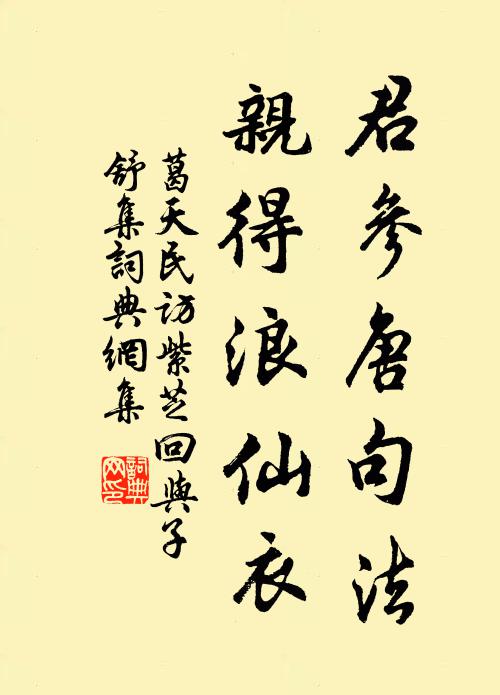 君參唐句法
親得浪仙衣
葛天民訪紫芝回與子
舒集詞典網集
詞典
网印